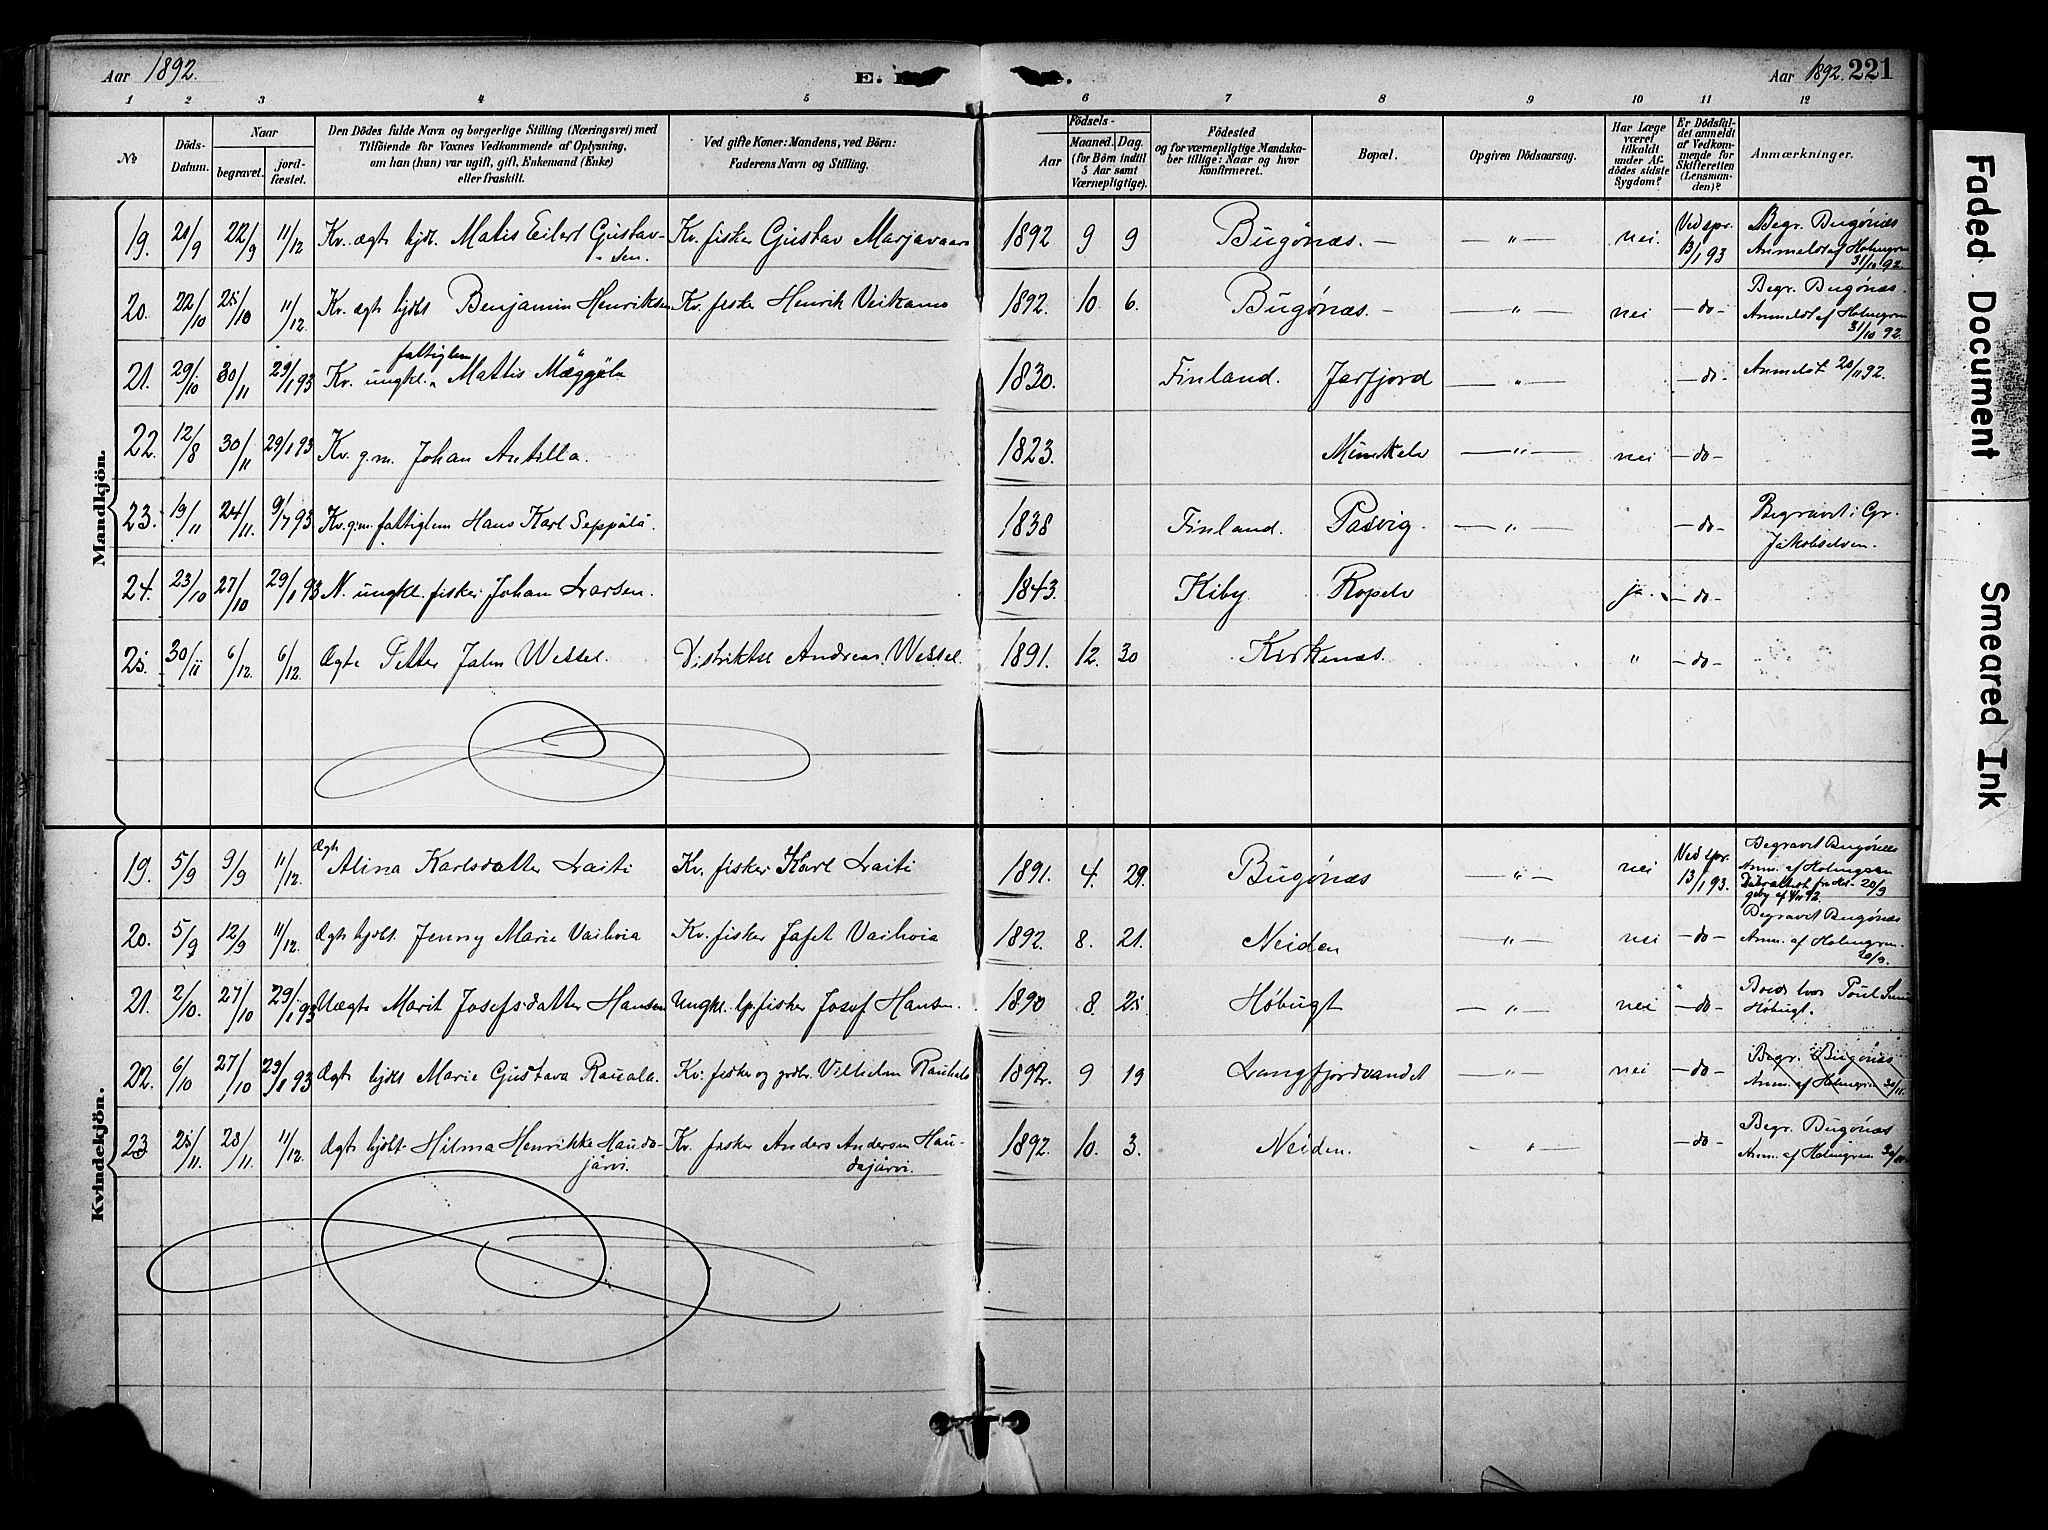 Aar 1892.
Aar 1892. 221
1 2 3 4 5 6 7 8 9 10 11 12
No
Döds-Datum.
Naar
begravet.
jord-fæstet.
Den Dödes fulde Navn og borgerlige Stilling (Næringsvei) med
Tilföiende for Voxnes Vedkommende af Oplysning,
om han (hun) var ugift, gift, Enkemand (Enke)
eller fraskilt.
Ved gifte Koner: Mandens, ved Börn:
Faderens Navn og Stilling.
Födsels-
Aar
Maaned. Dag.
(for Börn indtil
5 Aar samt
Værnepligtige).
Födested
og for værnepligtige Mandska-
ber tillige: Naar og hvor
konfirmeret.
Bopæl.
Opgiven Dödsaarsag.
Har Læge
været
tilkaldt
under Af-
dödes sidste
Sygdom?
Er Dödsfal-
det anmeldt
af Vedkom-
mende for
Skifteretten
(Lensman-
den)?
Anmærkninger.
Mandkjön.
19. 21/9 22/9 11/12 Kv. ægt hjdt. Matis Eilert Gustav-sen. Kv. fisker Gustav Marjavaara 1892 9 9 Bugönæs. — — " — nei. Ved spr. 13/1 93 Begr. Bugönæs Anmeldt af Holmgren 31/10 92.
20. 22/10 25/10 11/12 Kv. ægt hjdt Benjamin Henriksen Kv. fisker Henrik Veikamo 1892. 10 6. Bugönæs. — — " — nei — do — Begr. Bugönæs. Anmeldt af Holmgren 31/10 92.
21. 29/10 30/11 29/1 93 Kv. ungkl. fattiglem Mattis Mäggölä 1830. Finland. Jarfjord — " — — do — Anmeldt 20/11 92.
22. 12/8 30/11 29/1 93 Kv. g.m. Johan Antilla. 1823. Munkelv — " — nei — do —
23. 19/11 24/11. 9/7 93 Kv. g.m. fattiglem Hans Karl Seppälä. 1838 Finland. Pasvig. — " — — do — Begravet i Gr. Jakobselven.
24. 23/10 27/10 29/1 93 N. ungkl. fisker Johan Larsen. 1843. Kiby Ropelv ja. — do —
25. 30/11 6/12. 6/12. Ægte Petter Jahn Wessel. Distriktsl Andreas Wessel. 1891. 12. 30 Kirkenæs. " — do —
Kvindekjön.
19. 5/9 9/9 11/12. Ægt Alina Karlsdatter Laiti Kv. fisker Karl Laiti 1891. 4. 29. Bugönæs — " — nei Ved spr. 13/1 93. Begravet Bugönæs Anm. af Holmgren 20/9
20. 5/9 12/9 11/12. Ægt hjdt. Jenny Marie Vaihoia Kv. fisker Jafet Vaihoia 1892. 8. 21. Neiden — " — nei — do — Begravet Bugönæs Anm. af Holmgren. 20/9.
21. 2/10. 27/10 29/1 93 Uægte Marit Josefsdatter Hansen Ungkl. lp. fisker Josef Hansen. 1890 8. 25 Höbugt — " — nei — do — Höbugt.
22. 6/10 27/10 29/1 93 Ægt hjdt Marie Gustava Rauala. Kv. fisker og grdbr. Vilhelm 1892. 9 19 Langfjordvandet — " — nei — do — Begr. Bugönæs Anm. af Holmgren 30/11.
23 25/11. 28/11. 11/12. Ægt hjdt Hilma Henrikke Haudajärvi. Kv. fisker Anders Andersen Hau-dajärvi. 1892. 10. 3. Neiden. - " — — do — Begr. Bugönæs Anm. af Holmgren
Faded Document
Smeared Ink